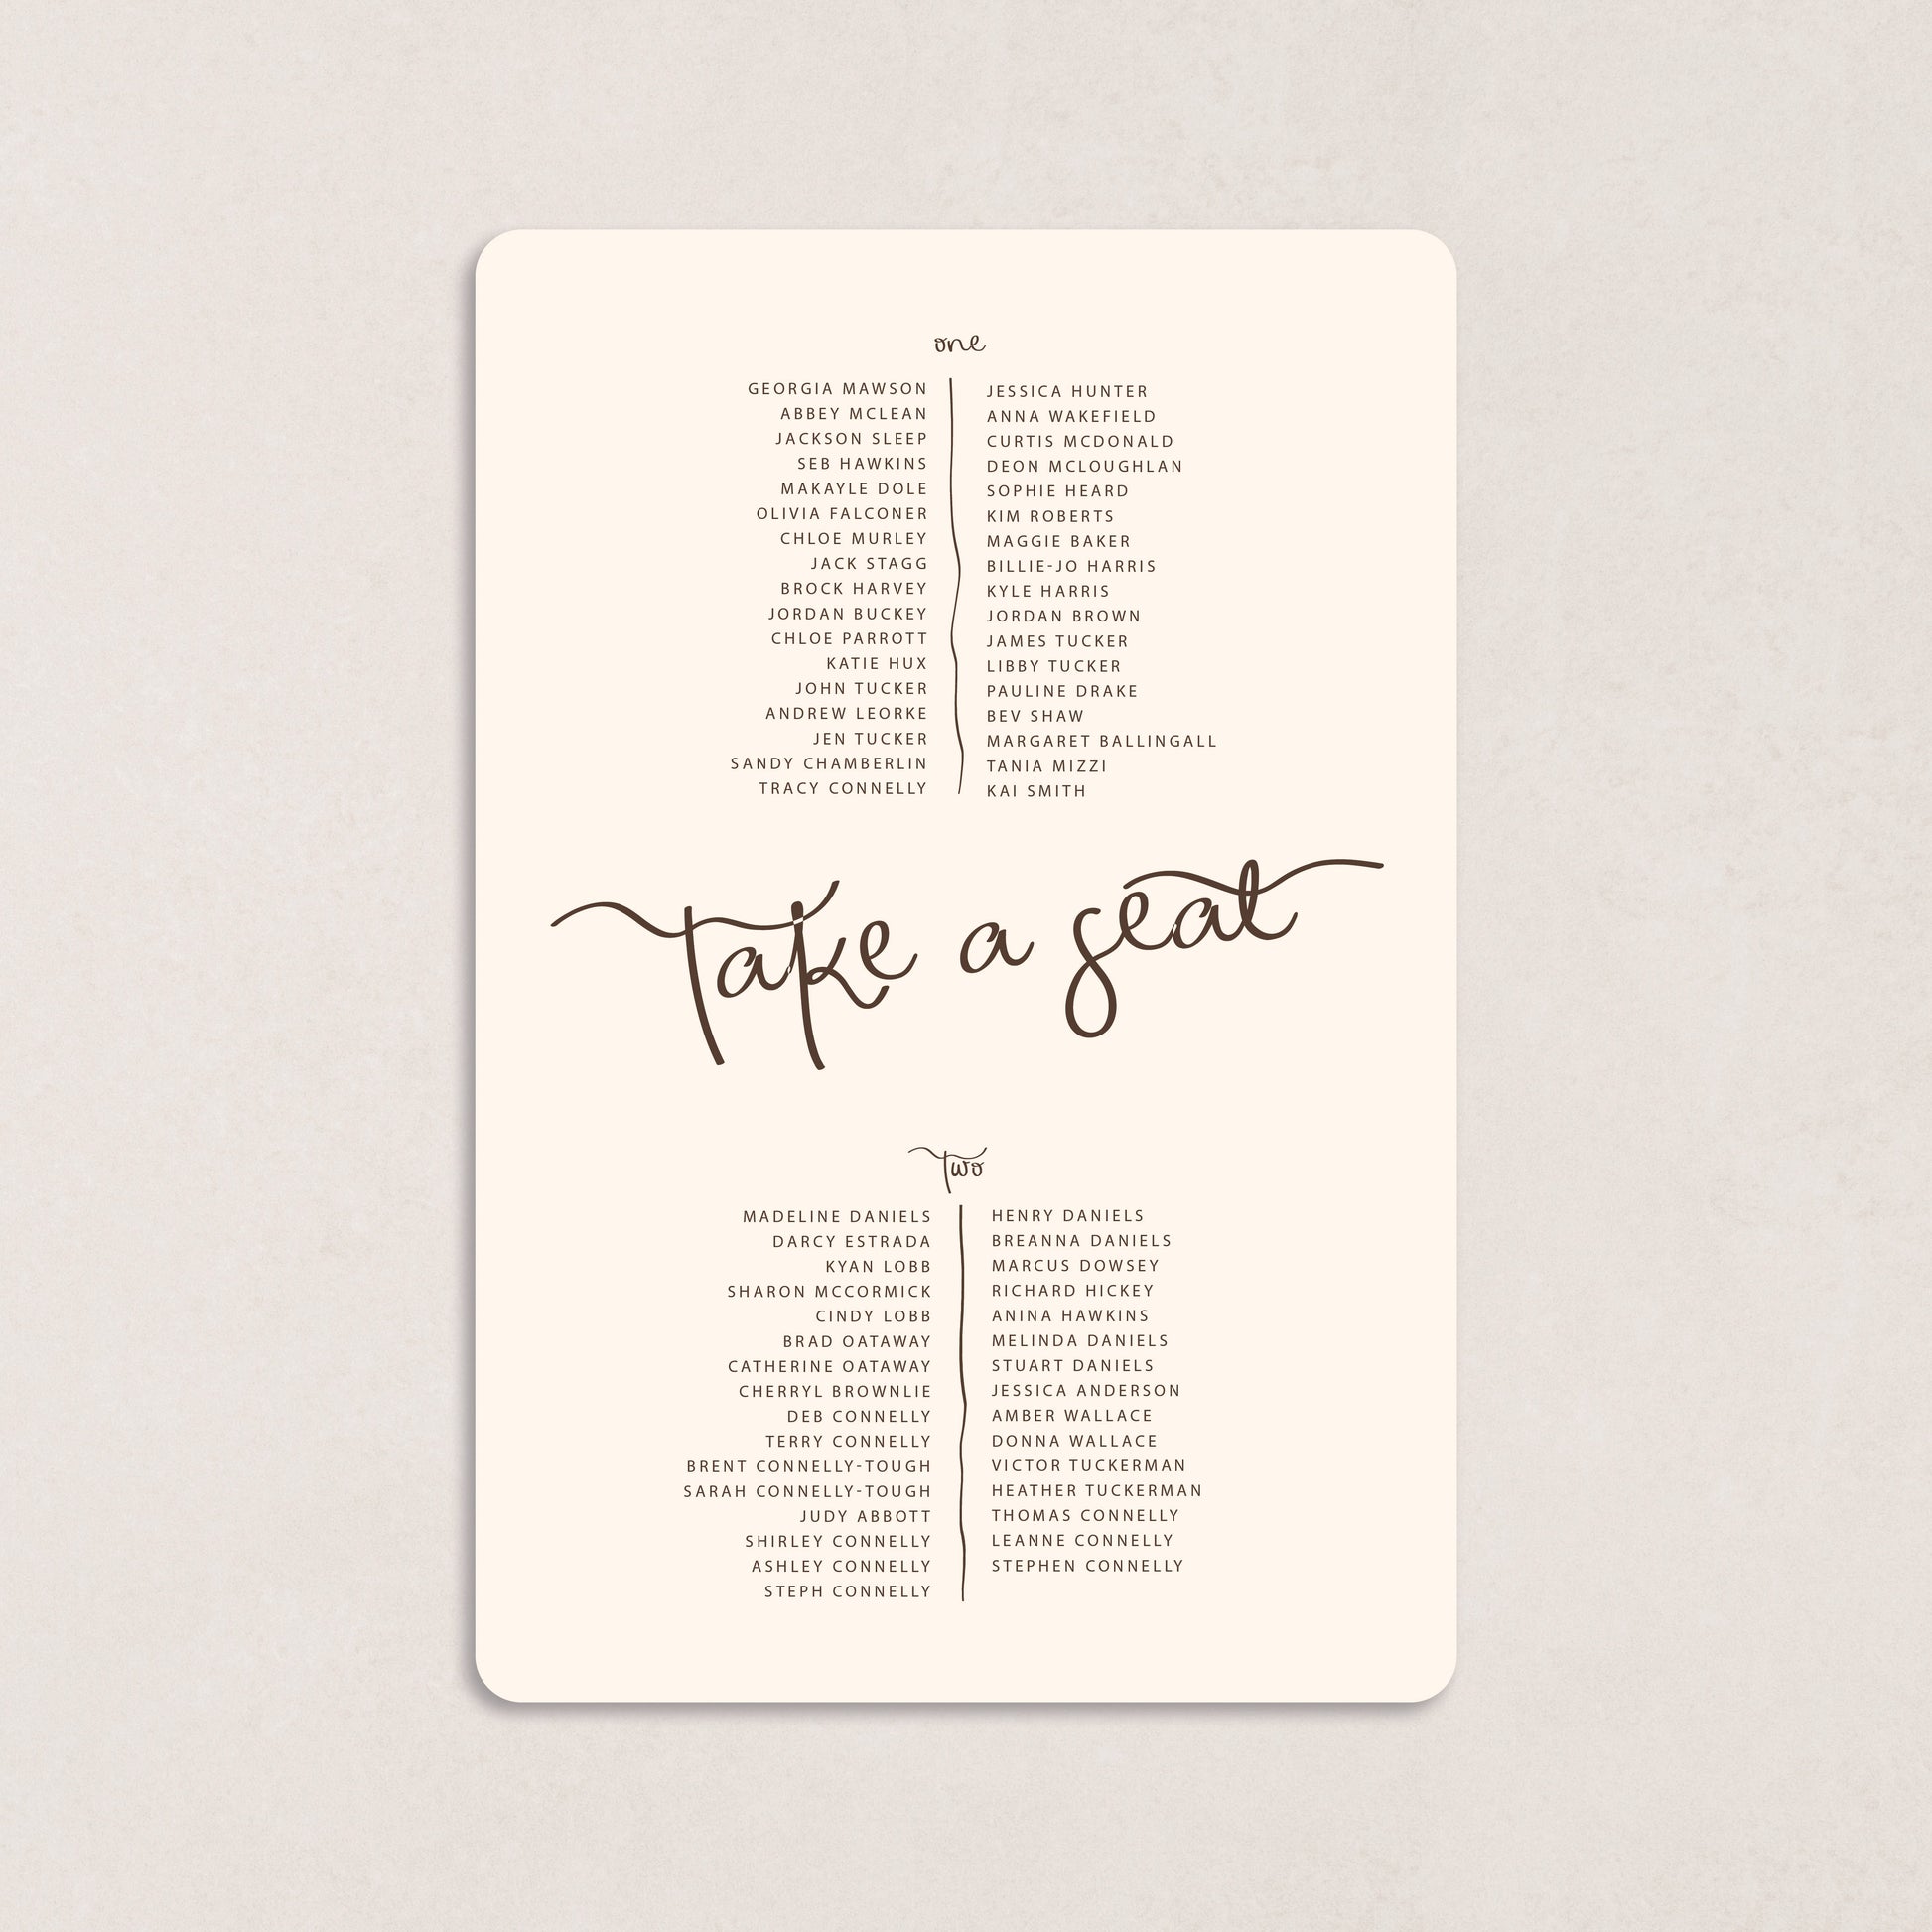 one
GEORGIA MAWSON
ABBEY MCLEAN
JACKSON SLEEP
SEB HAWKINS
MAKAYLE DOLE
OLIVIA FALCONER
CHLOE MURLEY
JACK STAGG
BROCK HARVEY
JORDAN BUCKEY
CHLOE PARROTT
KATIE HUX
JOHN TUCKER
ANDREW LEORKE
JEN TUCKER
SANDY CHAMBERLIN
TRACY CONNELLY
JESSICA HUNTER
ANNA WAKEFIELD
CURTIS MCDONALD
DEON MCLOUGHLAN
SOPHIE HEARD
KIM ROBERTS
MAGGIE BAKER
BILLIE-JO HARRIS
KYLE HARRIS
JORDAN BROWN
JAMES TUCKER
LIBBY TUCKER
PAULINE DRAKE
BEV SHAW
MARGARET BALLINGALL
TANIA MIZZI
KAI SMITH
take a seat
two
MADELINE DANIELS
DARCY ESTRADA
KYAN LOBB
SHARON MCCORMICK
CINDY LOBB
BRAD OATAWAY
CATHERINE OATAWAY
CHERRYL BROWNLIE
DEB CONNELLY
TERRY CONNELLY
BRENT CONNELLY-TOUGH
SARAH CONNELLY-TOUGH
JUDY ABBOTT
SHIRLEY CONNELLY
ASHLEY CONNELLY
STEPH CONNELLY
HENRY DANIELS
BREANNA DANIELS
MARCUS DOWSEY
RICHARD HICKEY
ANINA HAWKINS
MELINDA DANIELS
STUART DANIELS
JESSICA ANDERSON
AMBER WALLACE
DONNA WALLACE
VICTOR TUCKERMAN
HEATHER TUCKERMAN
THOMAS CONNELLY
LEANNE CONNELLY
STEPHEN CONNELLY